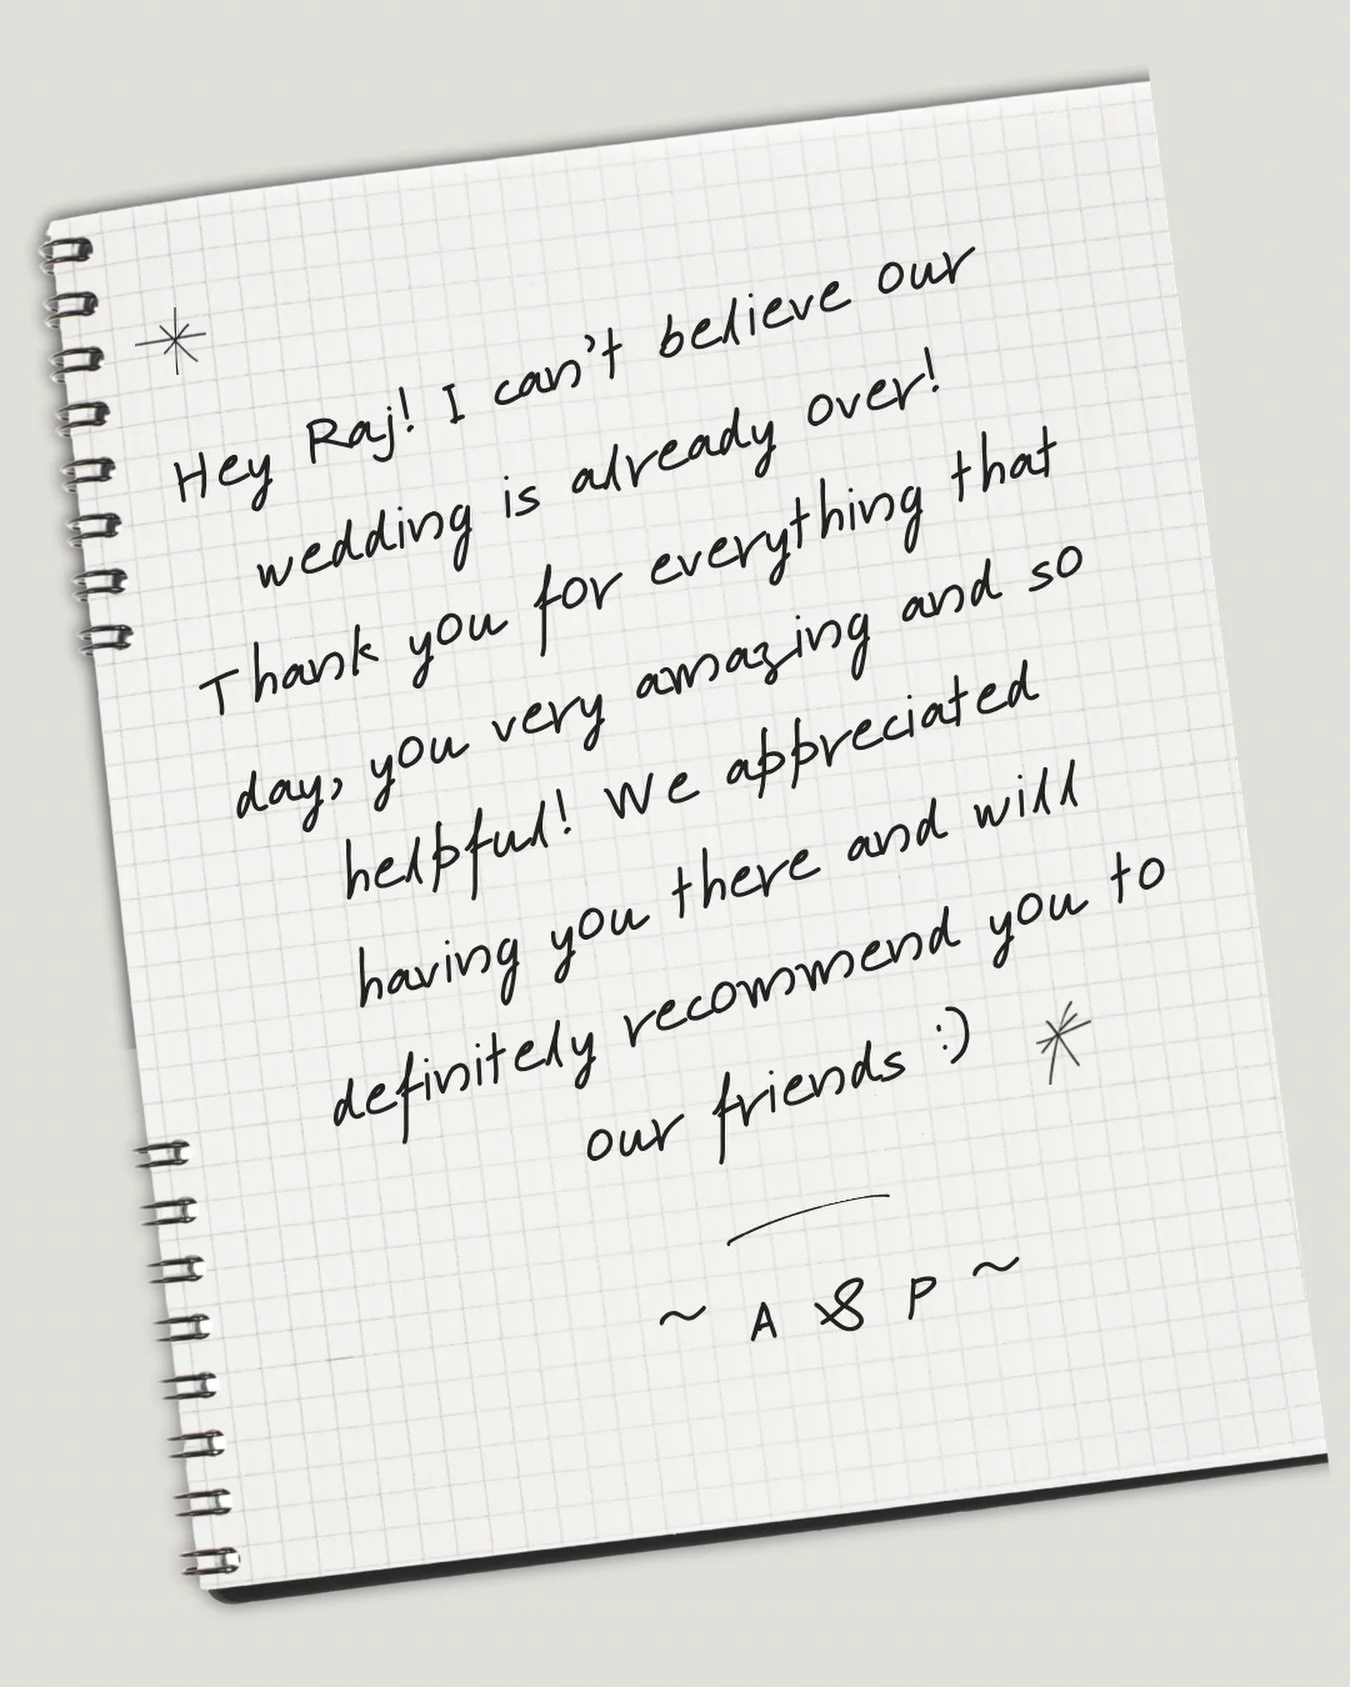 Hey Raj! I can't believe our
wedding is already over!
Thank you for everything that
day, you very amazing and so
helpful! We appreciated
having you there and will
definitely recommend you to
our friends :)
~ A & P ~